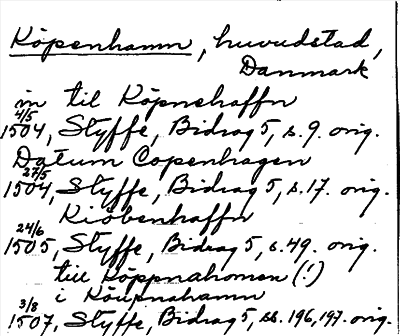 Köpenhamn, huvudstad,
Danmark
in til Köpnehaffn
4/5
1504, Styffe, Bidrag 5, s. 9. orig.
Datum Copenhagen
27/5
1504, Styffe, Bidrag 5, s. 17. orig.
Kiöbenhaffn
24/6
1505, Styffe, Bidrag 5, s. 49. orig.
till Köppnahomen (!)
i Köupnahamn
3/8
1507, Styffe, Bidrag 5, ss. 196, 197. orig.